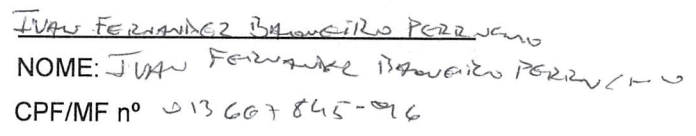 IVAN FERNANDEZ BALONEIRO PERRUCHO
NOME: IVAN FERNANDEZ BALONEIRO PERRUCHO
CPF/MF nº 013 607 845-96